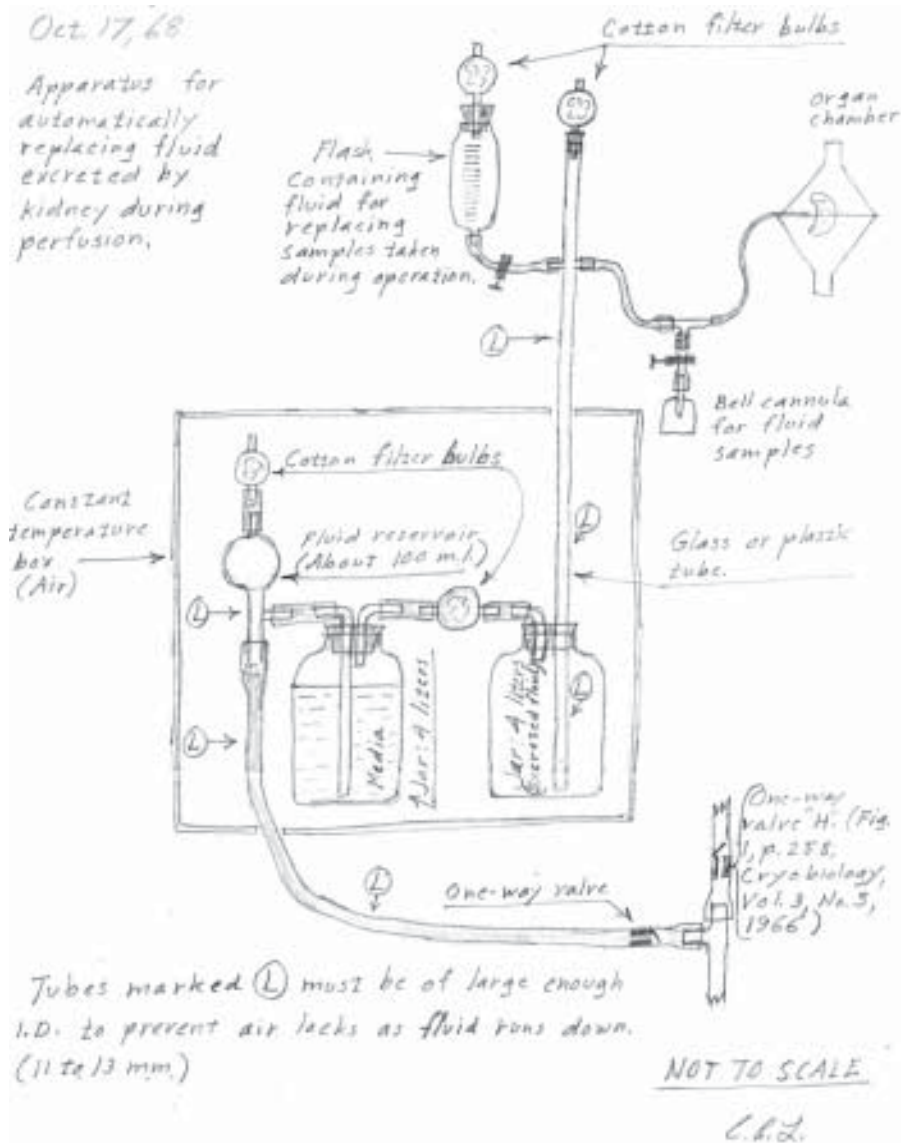 Oct. 17, 68
Apparatus for
automatically
replacing fluid
excreted by
kidney during
perfusion.
Cotton filter bulbs
Organ
chamber
Flask
Containing
fluid for
replacing
samples taken
during operation.
L
Bell cannula
for fluid
samples
Constant
temperature
box
(Air)
Cotton filter bulbs
Fluid reservoir
(About 100 m.l.)
L
Glass or plastic
tube.
L
L
L
Media
Jar: 4 liters
Jar: 4 liters
Excreted fluid
One-way
valve "H". (Fig.
1, p. 258,
Cryobiology,
Vol. 3, No. 3,
1966)
L
One-way valve
Tubes marked L must be of large enough
I.D. to prevent air locks as fluid runs down.
(11 to 13 mm.)
NOT TO SCALE
C.A.L.